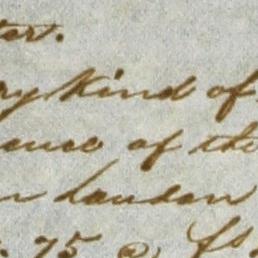 ter.
ry kind of
ance of the
London
75 @